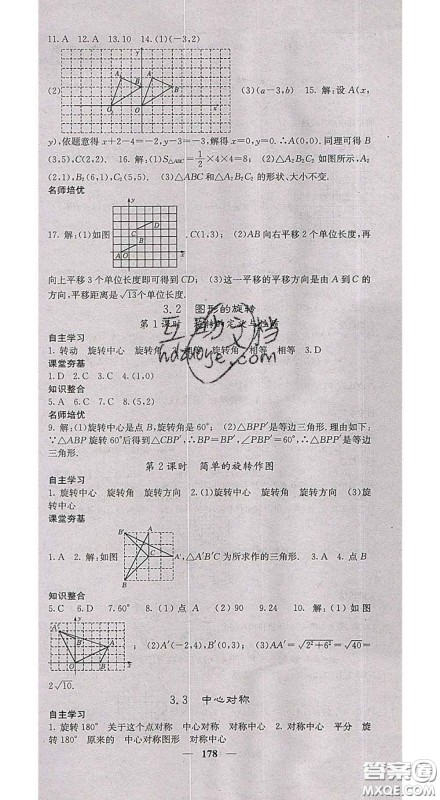 11. A 12. A 13. 10 14. (1)(-3,2)
(2) (3)(a-3,b) 15. 解:设 A(x,
y),依题意得 x+2-4=-2,y-3=-3,解得 x=0,y=0.∴A(0,0).同理可得 B
(3,5),C(2,2). 16. 解:(1)S△ABC=1/2×4×4=8; (2)△A₂B₂C₂ 如图所示,A₂
(2,1),B₂(6,1),C₂(5,5). (3)△ABC 和△A₂B₂C₂ 的形状、大小不变.
名师培优
17. 解:(1)如图 .C(1,3); (2)AB 向右平移 2 个单位长度,再
向上平移 3 个单位长度即可得到 CD; (3)这一平移的平移方向是由 A 到 C 的
方向,平移距离是√13个单位长度.
3.2 图形的旋转
第 1 课时
自主学习
1. 转动 旋转中心 旋转角 相等 3. D
课堂夯基
1. D 2. C 3. C 4. (1,0)
知识整合
5. A 6. C 7. C 8. (5,2)
名师培优
9. 解:(1)旋转中心是点 B,旋转角是 60°; (2)△BPP′是等边三角形. 理由如下:
∵△ABP 旋转 60°后得到△CBP′,∴BP=BP′,∠PBP′=60°;∴△BPP′是等边三
角形.
第 2 课时 简单的旋转作图
自主学习
1. 旋转中心 旋转角 旋转方向 2. (1)旋转中心 旋转角 旋转方向 (3)旋
转中心
课堂夯基
1. A 2. 解:如图 ,△A′B′C 为所求作的三角形. 3. A 4. 点 B
知识整合
5. C 6. D 7. 60° 8. (1)点 A (2)90 9. 24 10. 解:(1)如图
; (2)A′(-2,4),B′(4,2); (3)AA′=√(2²+6²)=√40=
2√10.
3.3 中心对称
自主学习
1. 旋转 180° 关于这个点对称 中心对称 对称中心 2. 对称中心 平分 旋
转 180° 原来的 中心对称图形 对称中心
178
答案圈
MXQE.COM